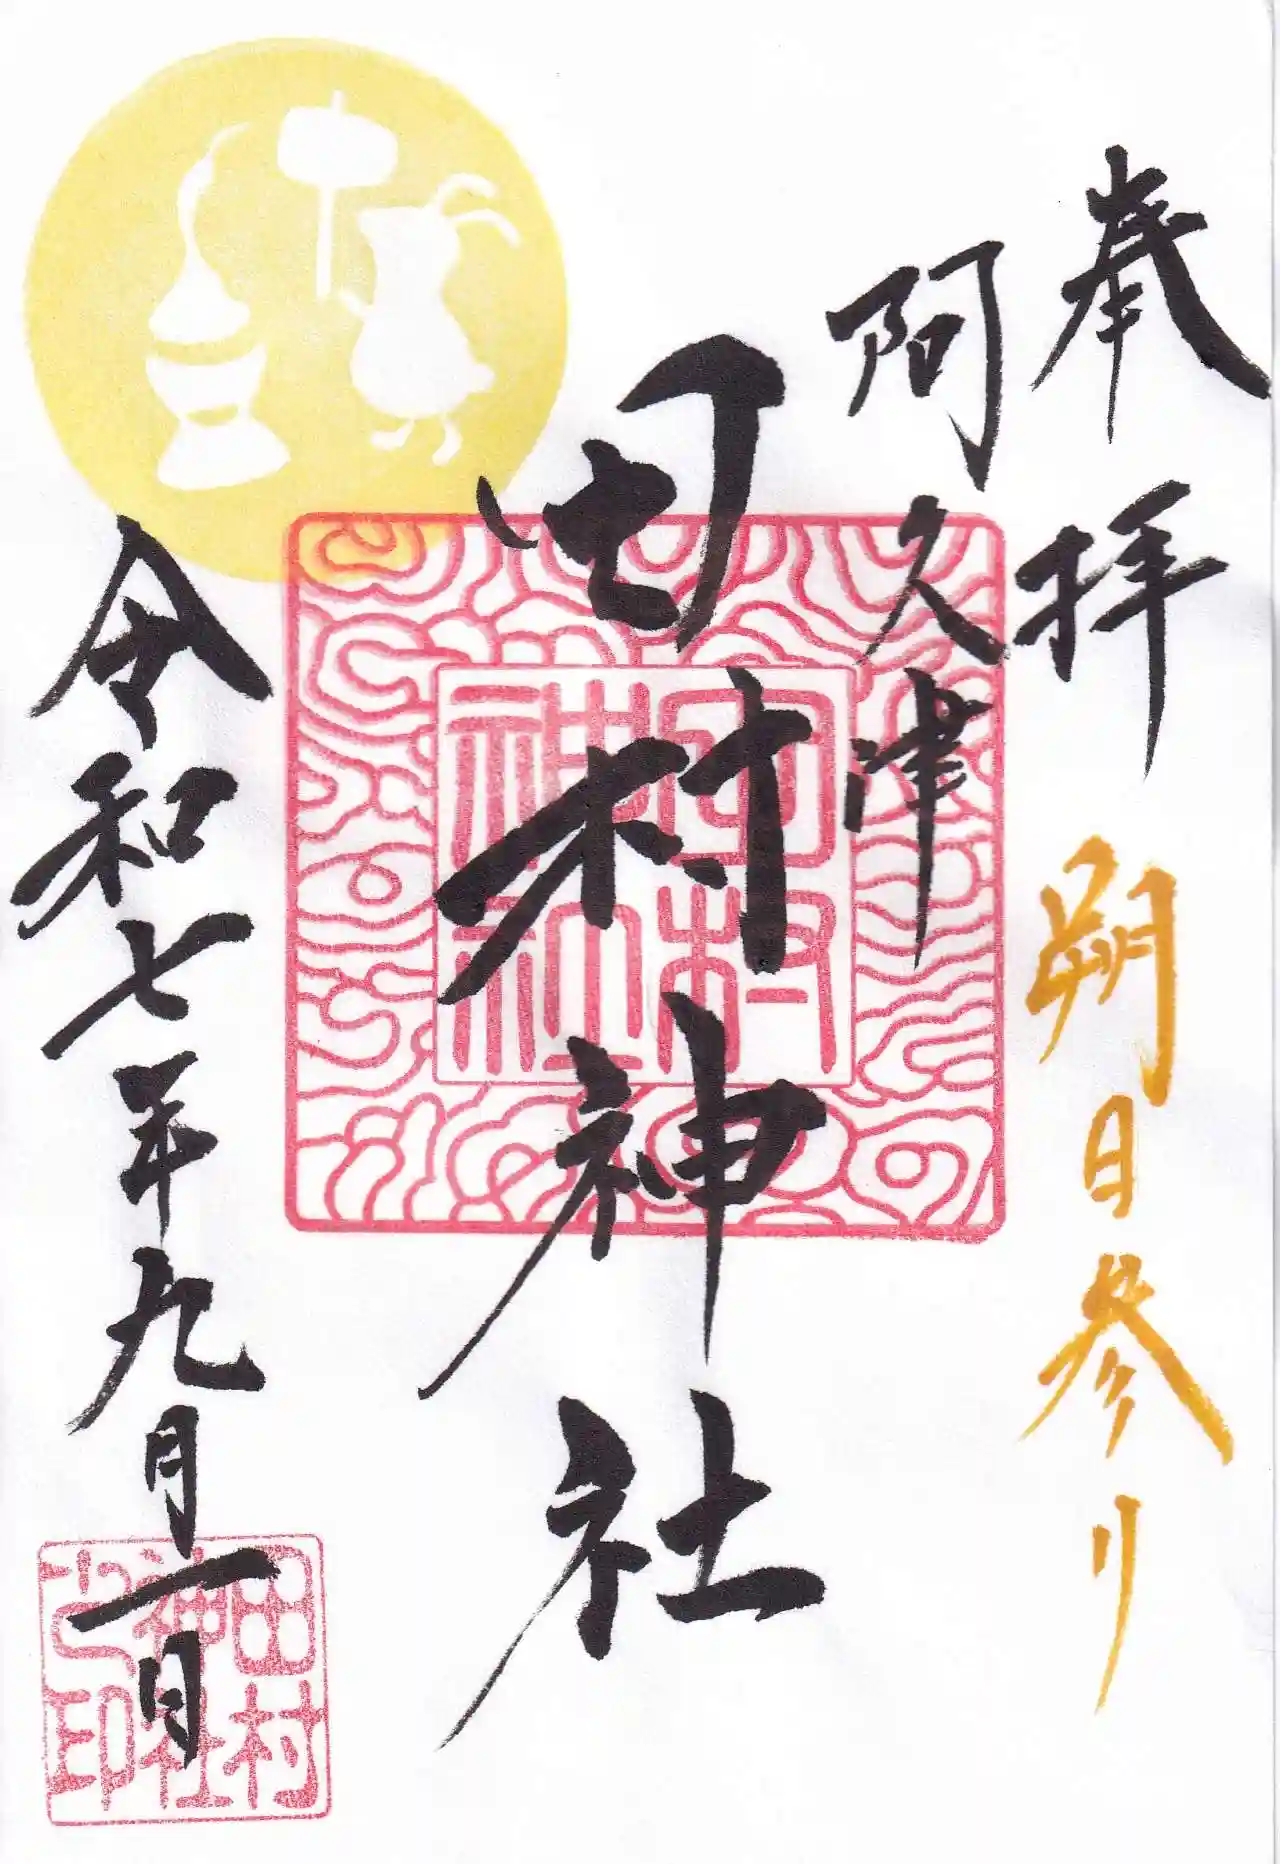 奉拝
朔日参り
阿久津
田村神社
令和七年九月一日
田村神社
田村神社之印